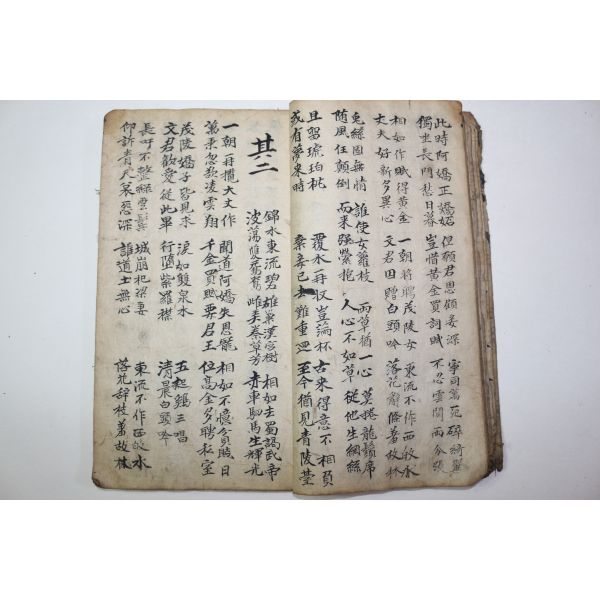 此時阿嬌正嬌妬 但願君恩顧妾深 寧同萬死碎綺翼
獨坐長門愁日暮 豈惜黃金買詞賦 不忍雲間兩分張
相如作賦得黃金 一朝將聘茂陵女 東流不作西歸水
丈夫好新多異心 文君因贈白頭吟 落花辭條羞故林
兔絲固無情 誰使女蘿枝 兩草猶一心 莫捲龍鬚席
随風任顛倒 而来强縈抱 人心不如草 從他生網絲
且留琥珀枕 覆水再収豈滿杯 古来得意不相負
或有夢来時 棄妾已去難重廻 至今猶見青陵臺
其二
錦水東流碧 雄巢漢宮樹 相如去蜀謁武帝
波蕩雙鴛鴦 雌弄秦草芳 赤車駟馬生輝光
一朝再攬大人作 聞道阿嬌失恩寵 相如不憶貧賤日
萬乘忽欲凌雲翔 千金買賦要君王 位高金多聘私室
茂陵嬌子皆見求 淚如雙泉水 五起鷄三唱
文君歡愛從此畢 行墮紫羅襟 清晨白頭吟
長吁不整綠雲鬢 城崩杞梁妻 東流不作西歸水
仰訴青天哀怨深 誰道土無心 落花辞枝羞故林